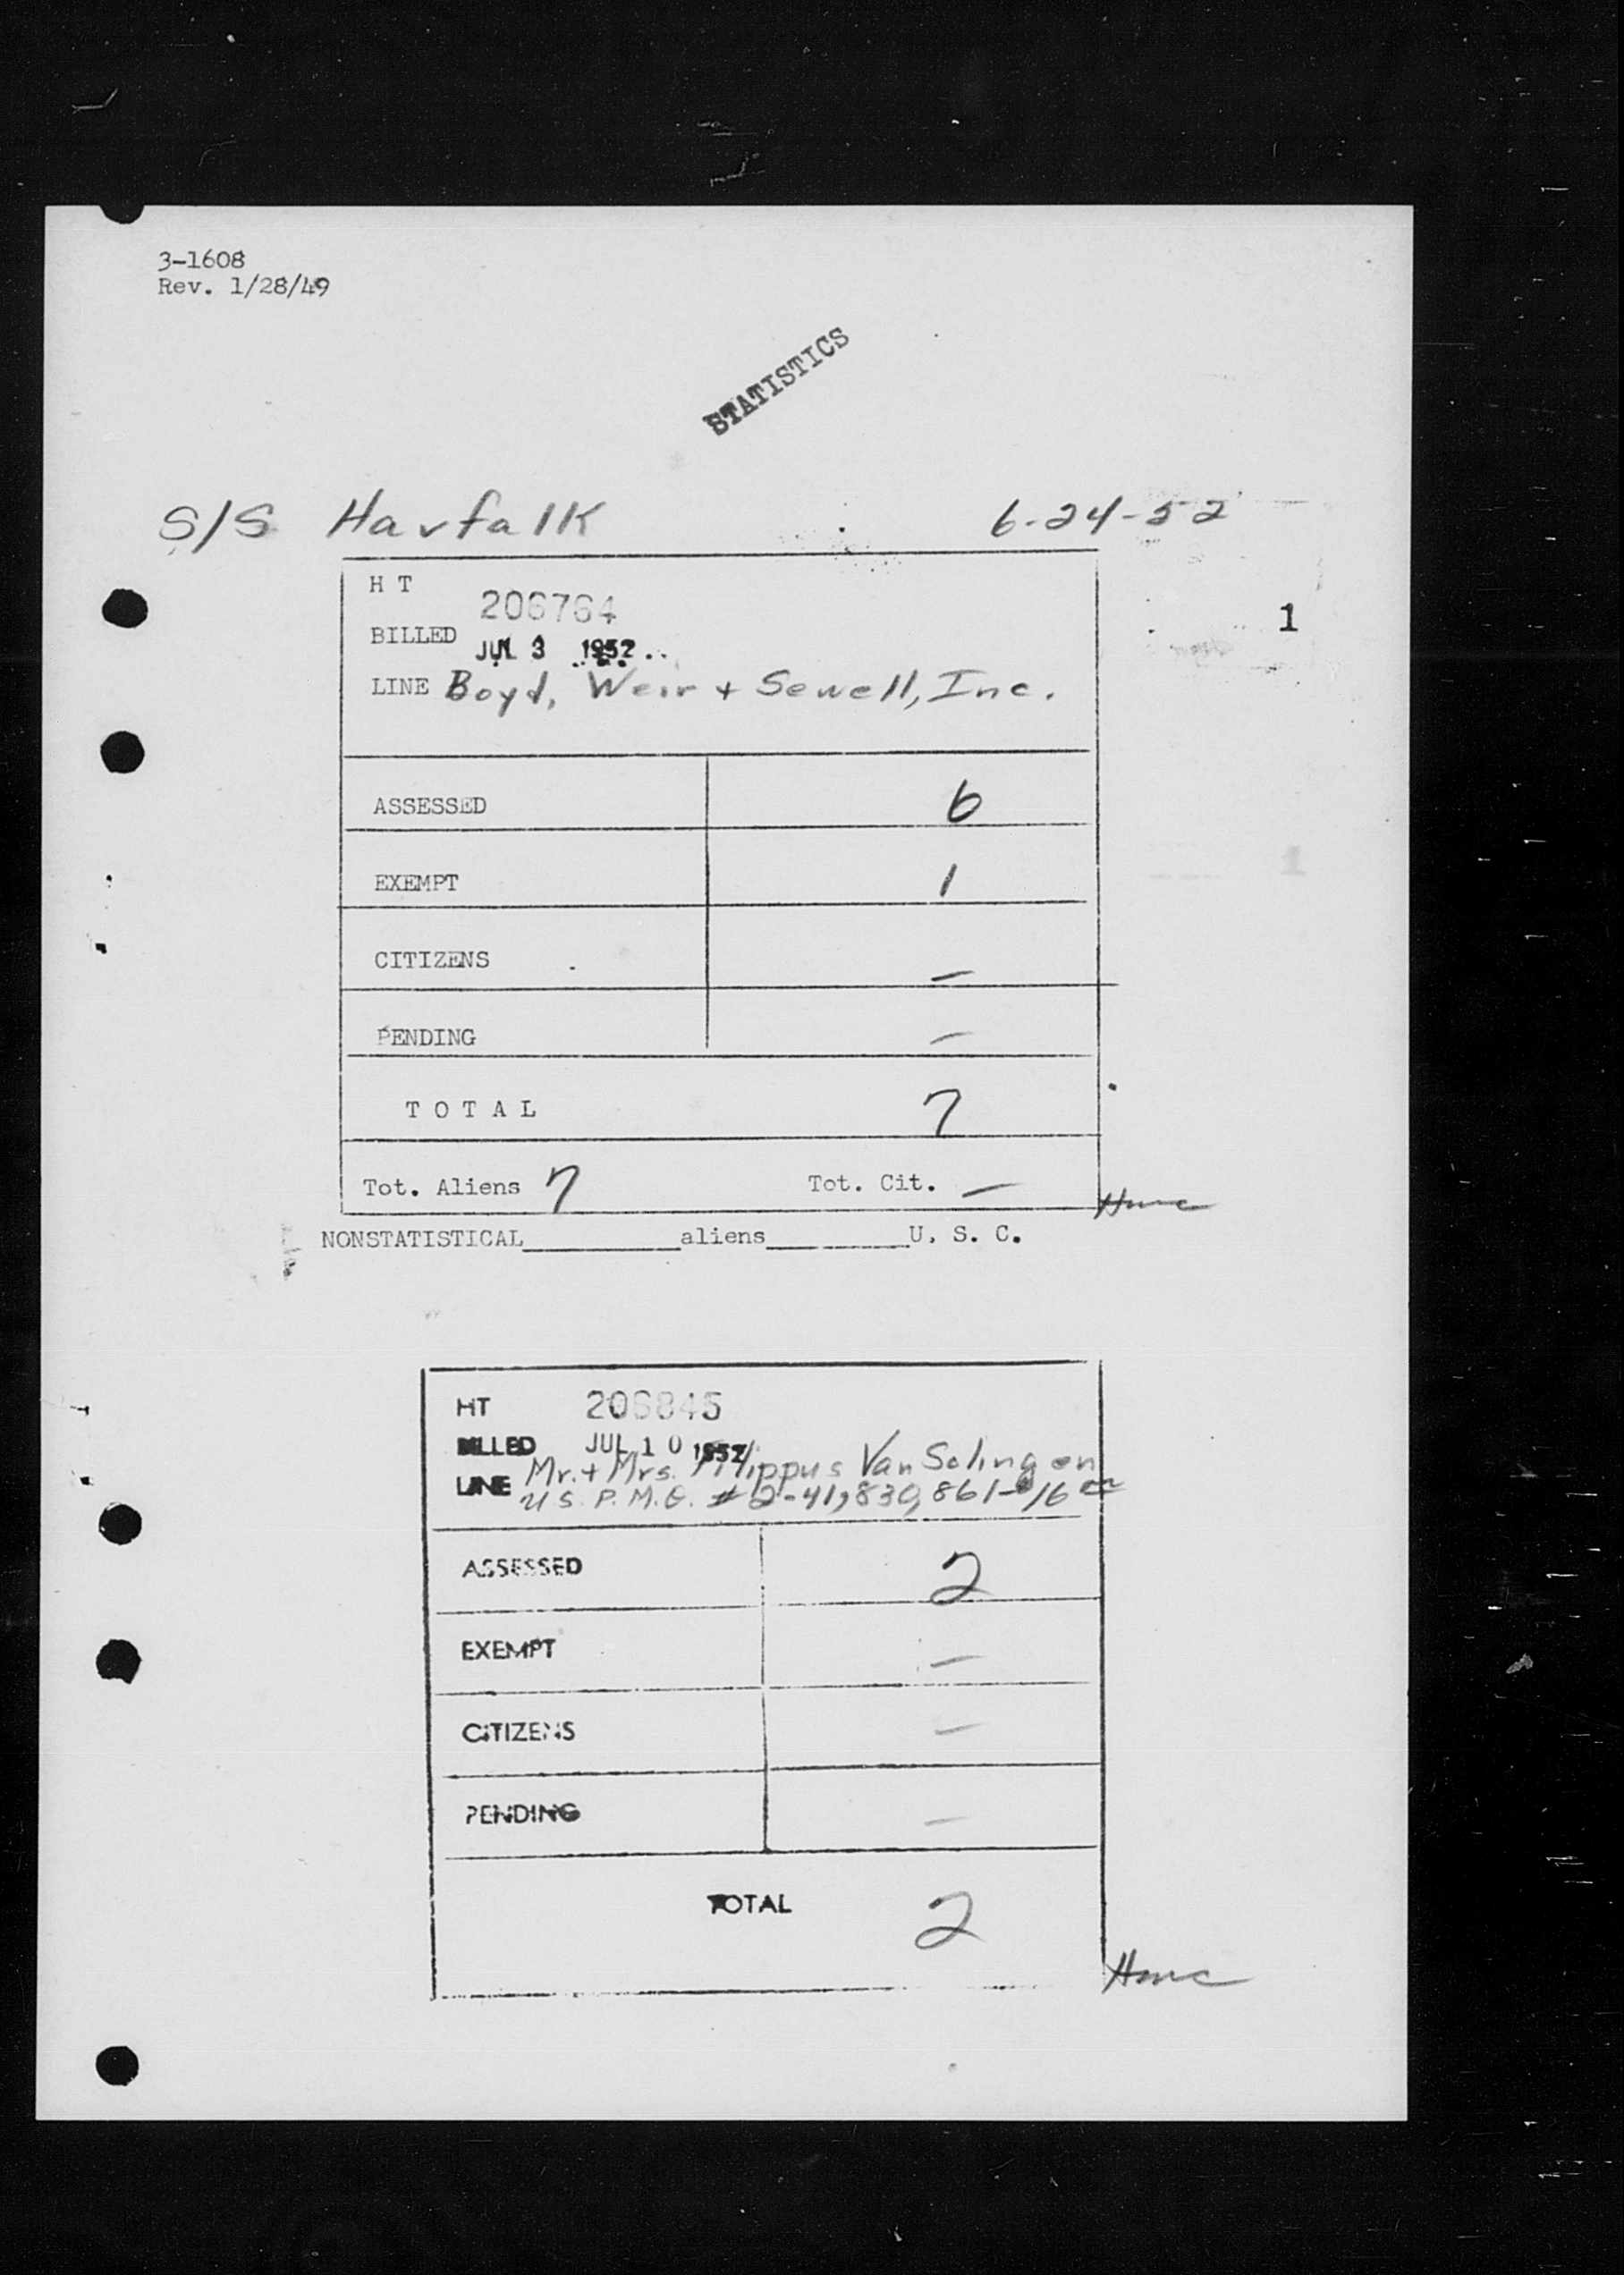 3-1608
Rev. 1/28/49
STATISTICS
S/S Havfalk 6-24-52
H T 206764
1
BILLED JUL 3 1952
LINE Boyd, Weir + Sewell, Inc.
ASSESSED 6
EXEMPT 1
CITIZENS —
PENDING —
T O T A L 7
Tot. Aliens 7 Tot. Cit. —
NONSTATISTICAL__________aliens__________U. S. C.
HT 206845
BILLED JUL 10 1952
LINE Mr. + Mrs. Filippus Van Solingen
U S. P. M. O. # 2-41,830,861-$16 00
ASSESSED 2
EXEMPT —
CITIZENS —
PENDING —
TOTAL 2